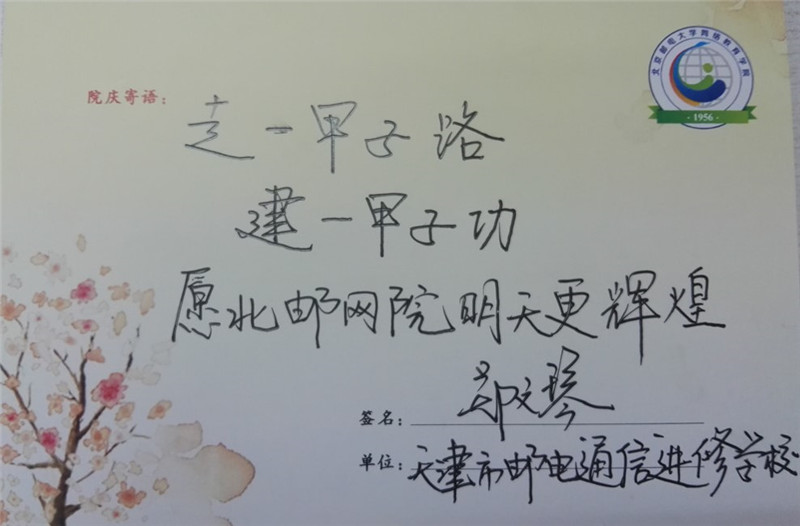 北京邮电大学网络教育学院
· 1956 ·
院庆寄语：
走一甲子路
建一甲子功
愿北邮网院明天更辉煌
签名：郑文琴
单位：天津市邮电通信进修学校